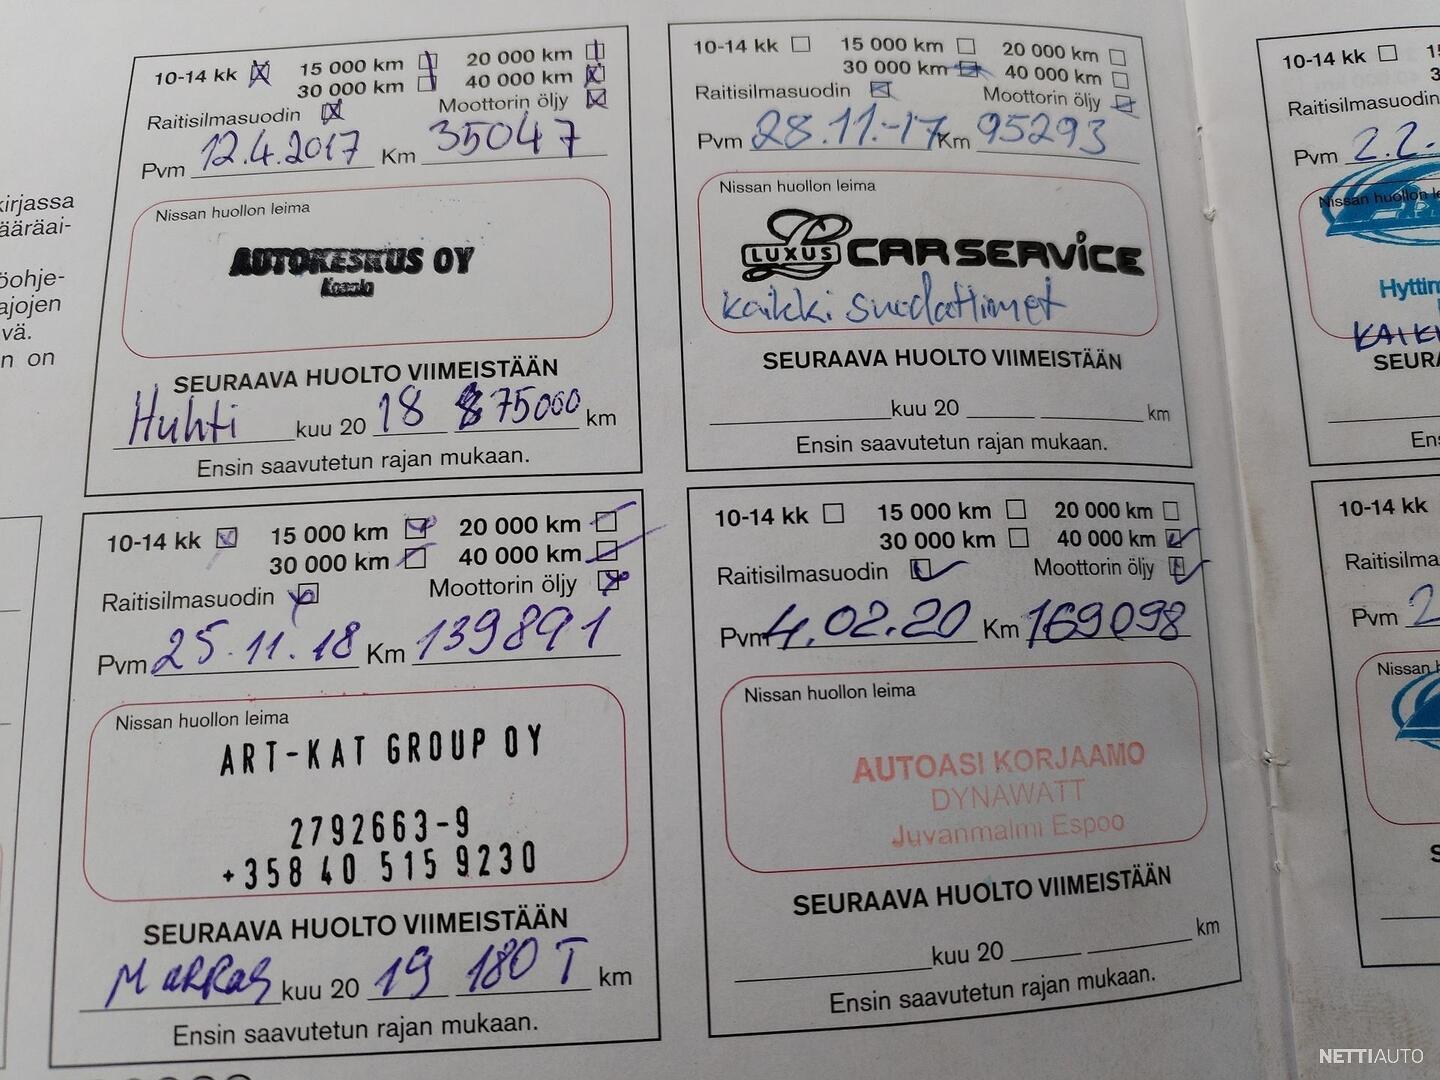 kirjassa
ääräai-
öohje-
ajojen
vä.
n on
10-14 kk 15 000 km 20 000 km
30 000 km 40 000 km
Raitisilmasuodin Moottorin öljy
Pvm 12.4.2017 Km 35047
Nissan huollon leima
AUTOKESKUS OY
SEURAAVA HUOLTO VIIMEISTÄÄN
Huhti kuu 20 18 75000 km
Ensin saavutetun rajan mukaan.
10-14 kk 15 000 km 20 000 km
30 000 km 40 000 km
Raitisilmasuodin Moottorin öljy
Pvm 28.11.-17 Km 95293
Nissan huollon leima
LUXUS CARSERVICE
kaikki suodattimet
SEURAAVA HUOLTO VIIMEISTÄÄN
kuu 20 km
Ensin saavutetun rajan mukaan.
10-14 kk 15 000 km 20 000 km
30 000 km 40 000 km
Raitisilmasuodin Moottorin öljy
Pvm 25.11.18 Km 139891
Nissan huollon leima
ART-KAT GROUP OY
2792663-9
+358 40 515 9230
SEURAAVA HUOLTO VIIMEISTÄÄN
Marras kuu 20 19 180 T km
Ensin saavutetun rajan mukaan.
10-14 kk 15 000 km 20 000 km
30 000 km 40 000 km
Raitisilmasuodin Moottorin öljy
Pvm 4.02.20 Km 169098
Nissan huollon leima
AUTOASI KORJAAMO
DYNAWATT
Juvanmalmi Espoo
SEURAAVA HUOLTO VIIMEISTÄÄN
kuu 20 km
Ensin saavutetun rajan mukaan.
10-14 kk
Raitisilmasuodin
Pvm 2.2.
Nissan huollon le
Hyttim
KAIK
SEURA
km
Ens
10-14 kk
Raitisilma
Pvm 2
Nissan h
S
NETTIAUTO